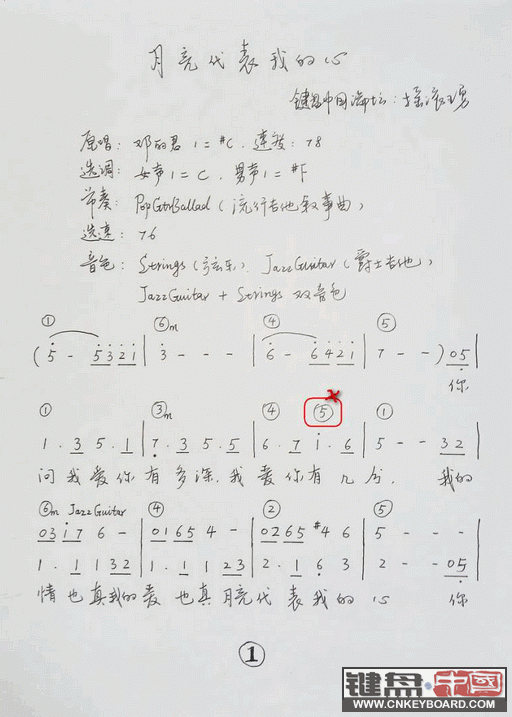 月亮代表我的心
键盘中国论坛:
原唱: 邓丽君 1=#C. 速度: 78
选调: 女声1=C, 男声1=#F
节奏: PopGtrBallad (流行吉他叙事曲)
选速: 76
音色: Strings (弦乐). JazzGuitar (爵士吉他)
JazzGuitar + Strings 双音色
① ⑥m ④ ⑤
( 5 - 5 3 2 1 | 3 - - - | 6 - 6 4 2 1 | 7 - - ) 0 5 |
你
① ③m ④ ⑤ ①
1 . 3 5 . 1 | 7 . 3 5 . 5 | 6 . 7 i . 6 | 5 - - 3 2 |
问我爱你有多深.我爱你有几分. 我的
⑥m JazzGuitar ④ ② ⑤
0 3 i 7 6 - | 0 1 6 5 4 - | 0 2 6 5 #4 6 | 5 - - - |
1 . 1 1 3 2 | 1 . 1 1 2 3 | 2 . 1 6 3 | 2 - - 0 5 |
情也真我的爱也真月亮代表我的心 你
①
键盘·中國
WWW.CNKEYBOARD.COM